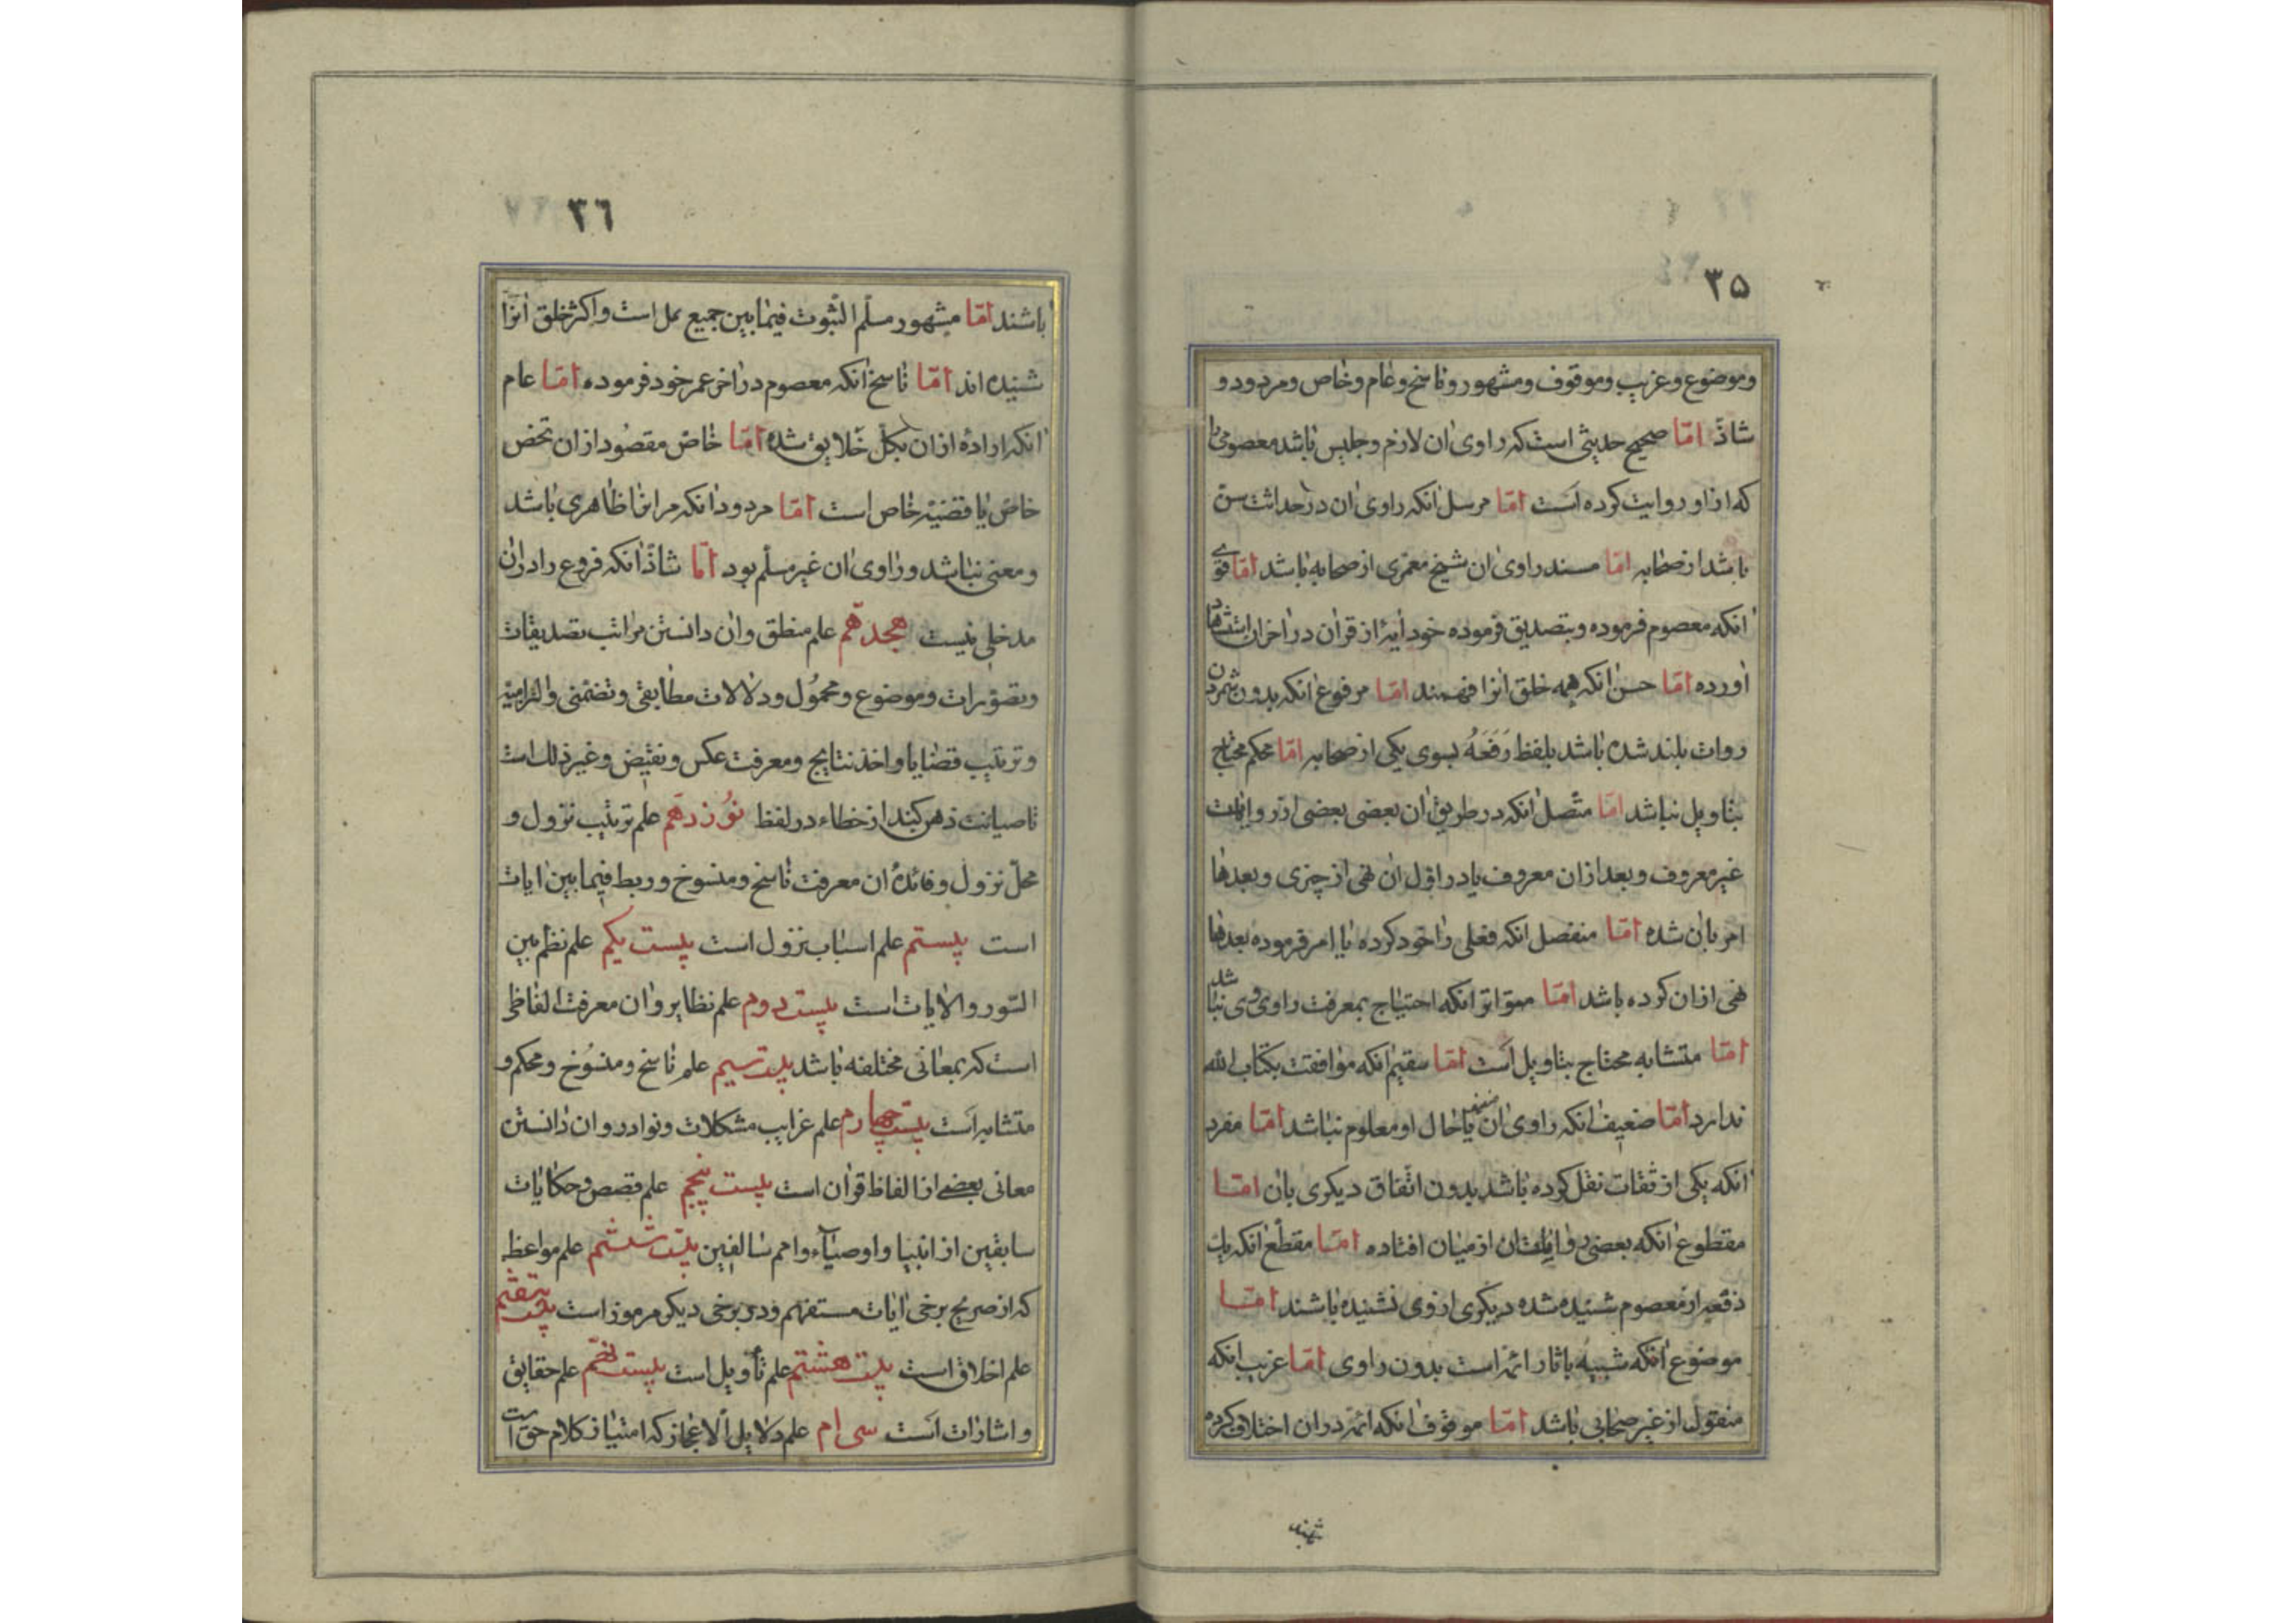 ۳۵
وموضوع وغریب وموقوف ومشهور وناسخ وعام وخاص ومردود و
شاذّ امّا صحیح حدیثی است که راوی ان لازم وجلیس باشد معصومی را
که از او روایت کرده است امّا مرسل انکه راوی ان در حداثت سن
باشد از صحابه امّا مسند راوی ان شیخ معمری از صحابه باشد امّا قوی
انکه معصوم فرموده وبتصدیق فرموده خود ایهٔ از قران در اخر ان استشهاد
اورده امّا حسن انکه همه خلق انرا فهمند امّا مرفوع انکه بدون شمردن
روات بلند شده باشد بلفظ رَفَعَهُ بسوی یکی از صحابه امّا محکم محتاج
بتاویل نباشد امّا متّصل انکه در طریق ان بعضی بعضی از روایات
غیر معروف وبعد از ان معروف یا در اوّل ان نهی از چیزی وبعدها
امر بان شده امّا منفصل انکه فعلی را خود کرده یا امر فرموده بعدها
نهی از ان کرده باشد امّا متواتر انکه احتیاج بمعرفت راوی وی نباشد
امّا متشابه محتاج بتاویل است امّا سقیم انکه موافقت بکتاب الله
ندارد امّا ضعیف انکه راوی ان یا حال او معلوم نباشد امّا مفرد
انکه یکی از ثقات نقل کرده باشد بدون اتّفاق دیکری بان امّا
مقطوع انکه بعضی روایات ان از میان افتاده امّا مقطّع انکه یک
دفعه از معصوم شنیده شده دیکری از وی نشنیده باشند امّا
موضوع انکه شبیه باثار ائمّه است بدون راوی امّا غریب انکه
منقول از غیر صحابی باشد امّا موقوف انکه ائمّه در ان اختلاف کرده
۳٦
باشند امّا مشهور مسلّم الثّبوت فیما بین جمیع ملل است واکثر خلق انرا
شنیده اند امّا ناسخ انکه معصوم در اخر عمر خود فرموده امّا عام
انکه اراده از ان بکلّ خلایق شده امّا خاصّ مقصود از ان شخص
خاصّ یا قضیّهٔ خاص است امّا مردود انکه مر انرا ظاهری باشد
ومعنی نباشد وراوی ان غیر مسلّم بود امّا شاذّ انکه فروع را در ان
مدخلی نیست هجدهم علم منطق وان دانستن مراتب تصدیقات
وتصوّرات وموضوع ومحمول ودلالات مطابقی وتضمّنی والتزامیّه
وترتیب قضایا واخذ نتایج ومعرفت عکس ونقیض وغیر ذلک است
تا صیانت ذهن کند از خطاء در لفظ نوزدهم علم ترتیب نزول و
محلّ نزول وفائدهٔ ان معرفت ناسخ ومنسوخ وربط فیما بین ایات
است بیستم علم اسباب نزول است بیست یکم علم نظم بین
السّور والایات است بیست دوم علم نظایر وان معرفت الفاظی
است که بمعانی مختلفه باشد بیست سیم علم ناسخ ومنسوخ ومحکم و
متشابه است بیست چهارم علم غرایب مشکلات ونوادر وان دانستن
معانی بعضی از الفاظ قران است بیست پنجم علم قصص وحکایات
سابقین از انبیا واوصیاء وامم سالفین بیست ششم علم مواعظ
که از صریح برخی ایات مستفهم ودر برخی دیکر مرموز است بیست هفتم
علم اخلاق است بیست هشتم علم تأویل است بیست نهم علم حقایق
واشارات است سی ام علم دلایل الاعجاز که امتیاز کلام حق است